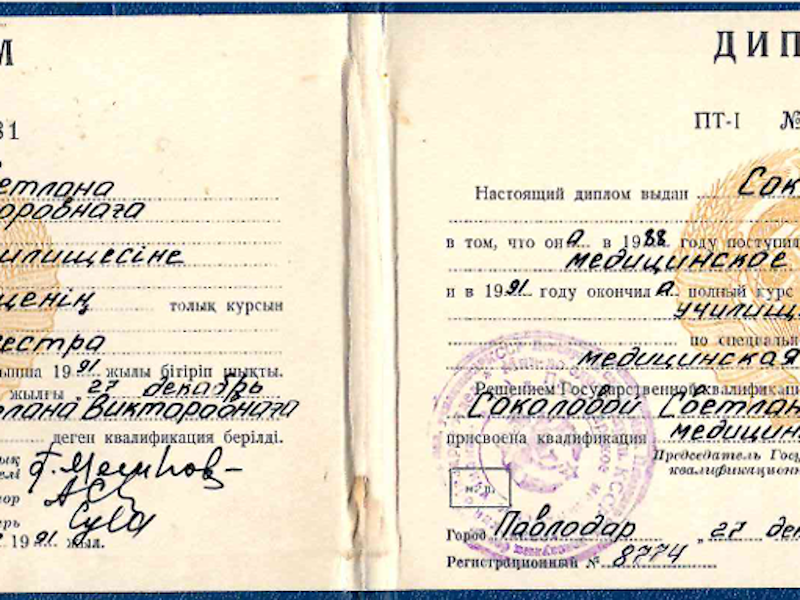 М
81
етлана
оровнаға
илищесіне
щенің толық курсын
естра
ынша 1991 жылы бітіріп шықты.
жылғы „27 декабрь
лана Викторовнаға
деген квалификация берілді.
1991 жыл.
ДИП
ПТ-I №
Настоящий диплом выдан Сок
в том, что она в 1988 году поступи
медицинское
и в 1991 году окончила полный курс
училищ
по специаль
медицинская
Решением Государственной квалифика
Соколовой Светлан
присвоена квалификация
медицин
Председатель Госу
квалификационн
м. п.
Город Павлодар „27 дек
Регистрационный № 8774